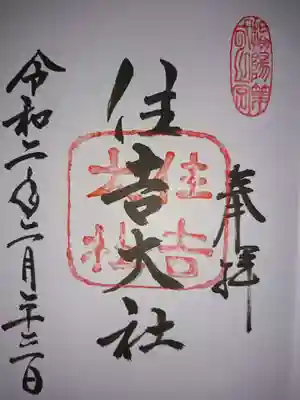 奉拝
住吉大社
住吉大社
令和二年二月二十二日